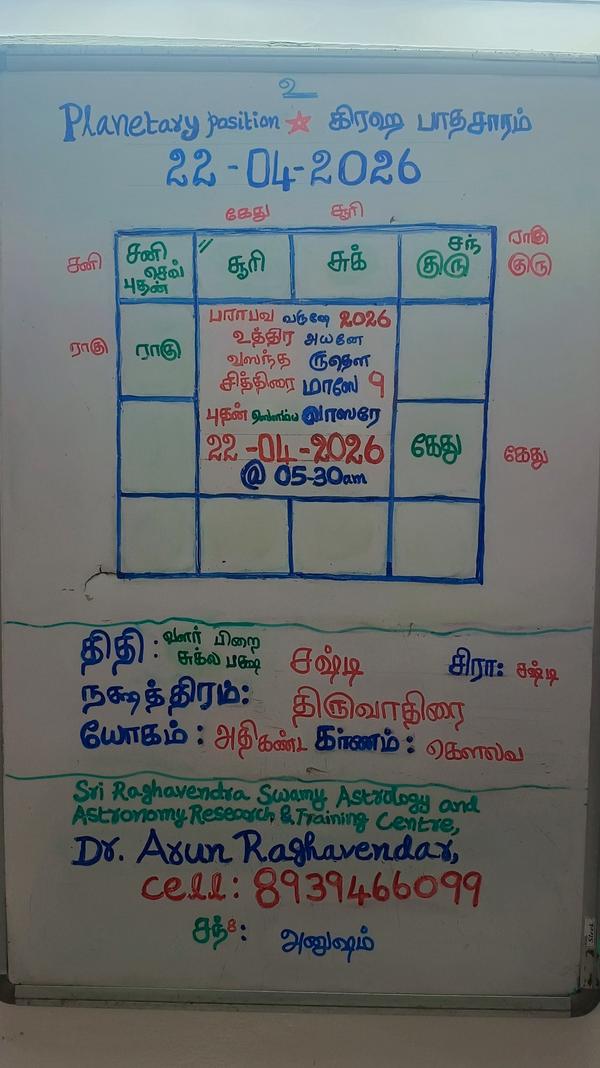 உ
Planetary position ☆ கிரஹ பாதசாரம்
22-04-2026
கேது சூரி
சனி
ராகு
குரு
சனி
செவ்
புதன்
சூரி
சுக்
சந்
குரு
ராகு
ராகு
கேது
கேது
பராபவ வருஷே 2026
உத்திர அயனே
வஸந்த ருதௌ
சித்திரை மாஸே 9
புதன் வாஸரே
22-04-2026
@ 05-30am
திதி : வளர் பிறை சஷ்டி சிரா: சஷ்டி
சுக்ல பக்ஷ
நக்ஷத்திரம்: திருவாதிரை
யோகம் : அதிகண்ட கரணம் : கௌலவ
Sri Raghavendra Swamy Astrology and
Astronomy Research & Training Centre,
Dr. Arun Raghavendar,
Cell: 8939466099
சந் 8: அனுஷம்